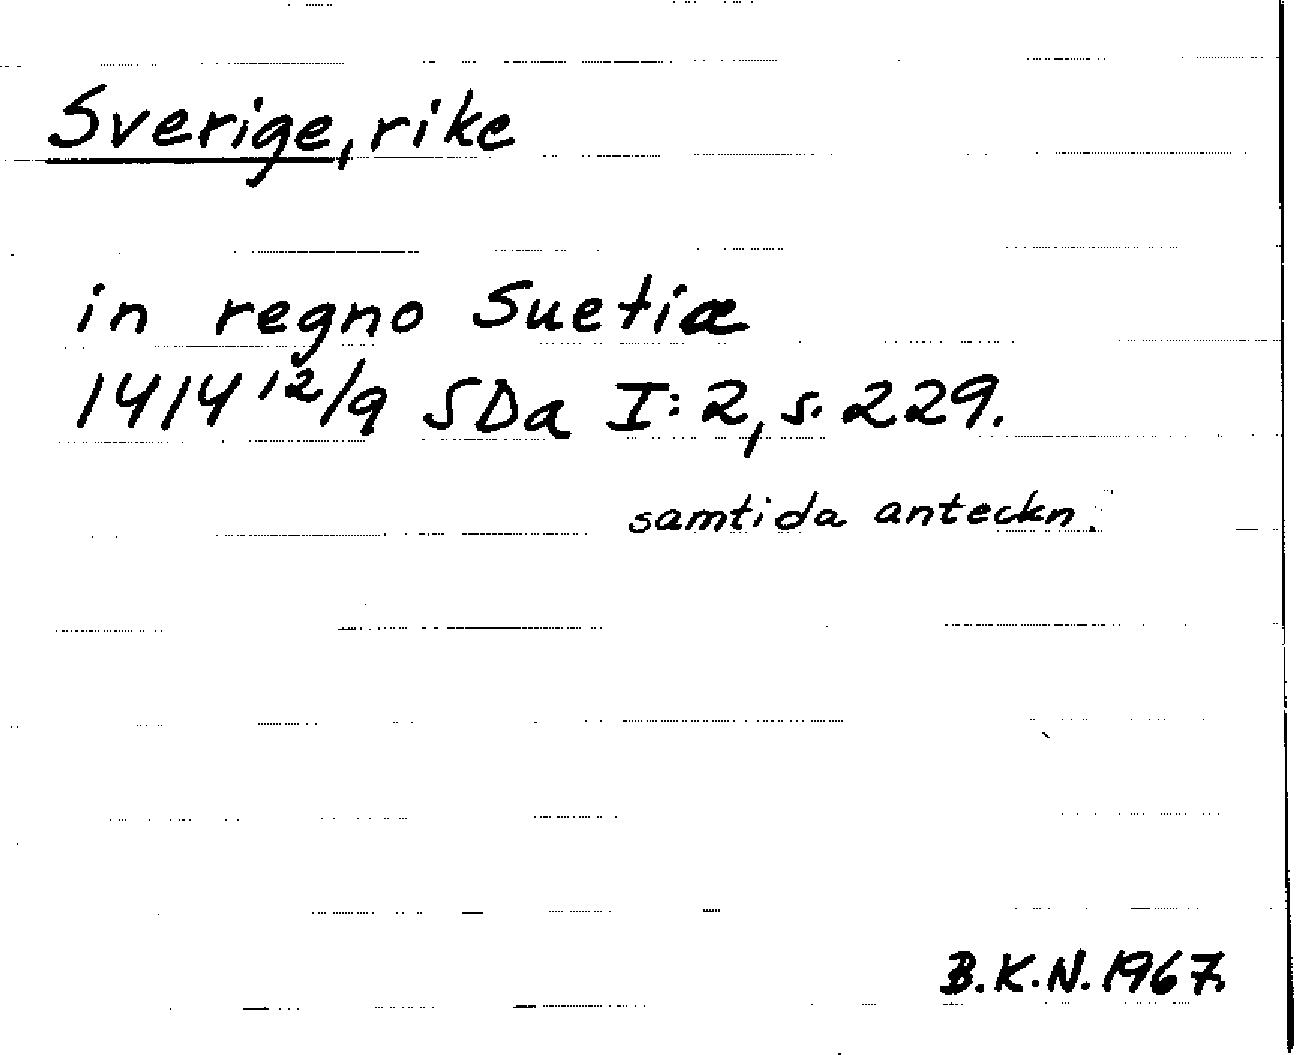 Sverige, rike
in regno Suetiæ
1414 12/9 SDa I:2, s. 229.
samtida anteckn.
B.K.N. 1967.